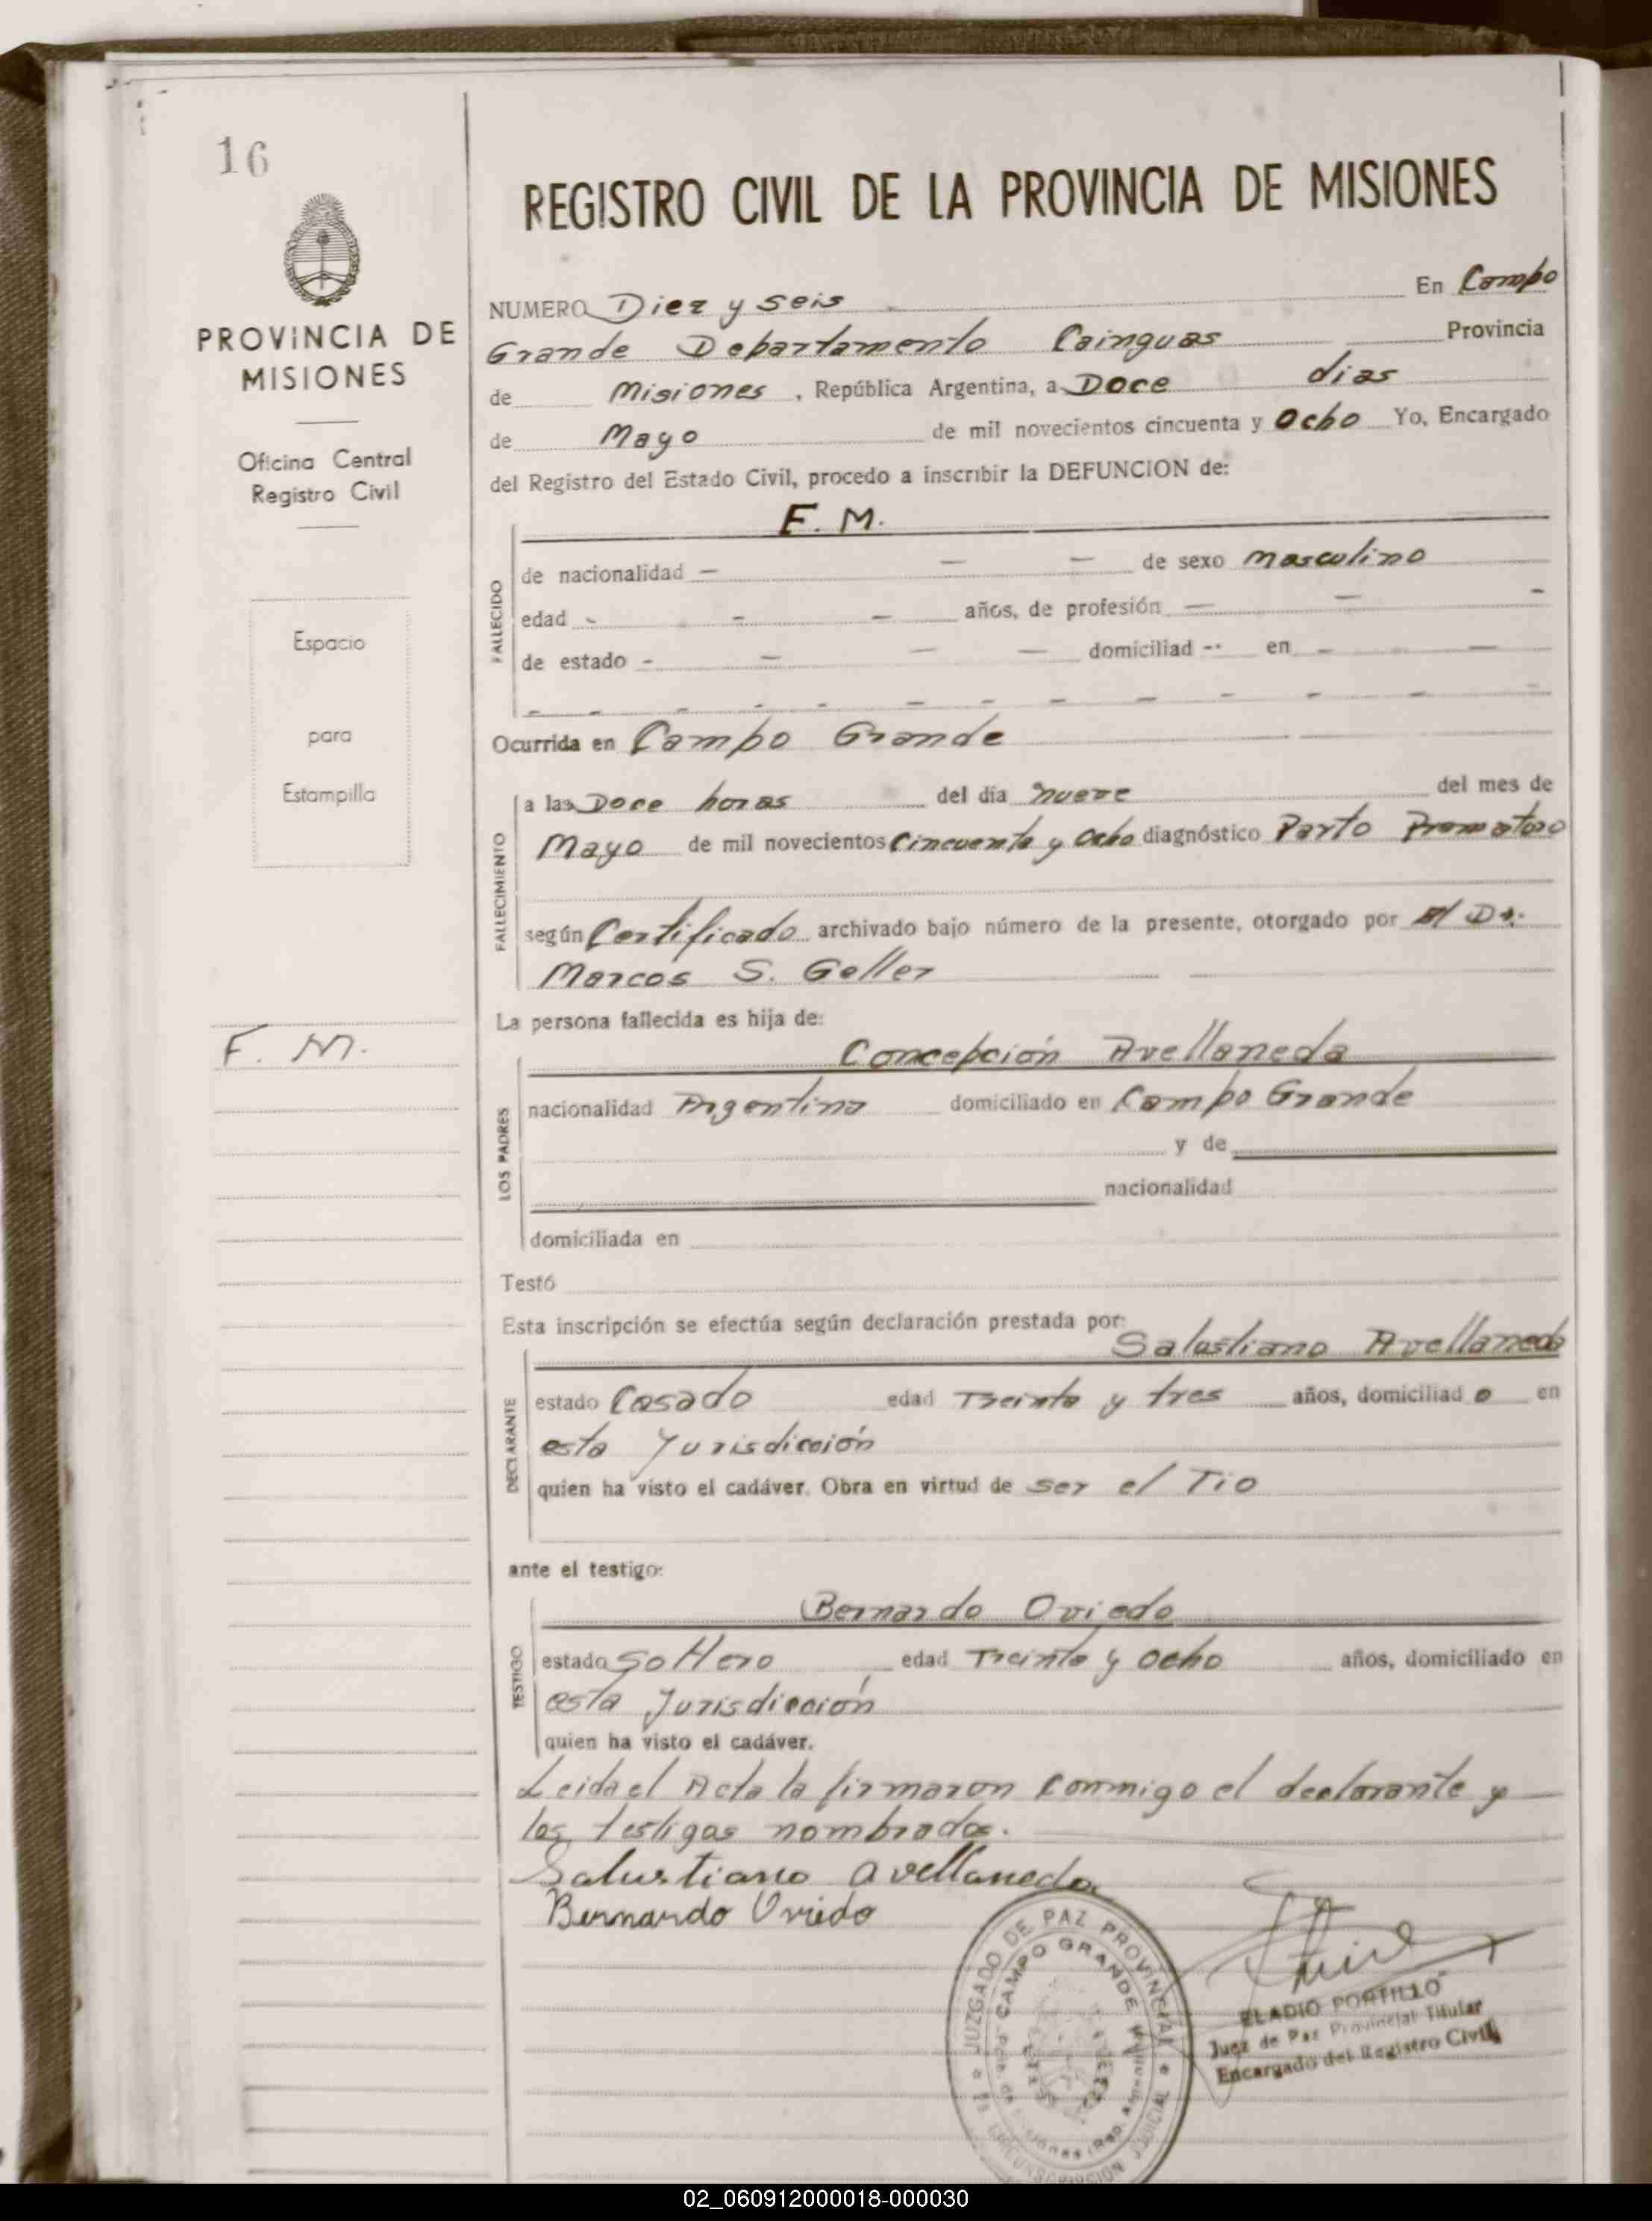 16
REGISTRO CIVIL DE LA PROVINCIA DE MISIONES
PROVINCIA DE
MISIONES
Oficina Central
Registro Civil
Espacio
para
Estampilla
F. M.
NUMERO Diez y seis En Campo
Grande Departamento Cainguas Provincia
de Misiones, República Argentina, a Doce dias
de Mayo de mil novecientos cincuenta y Ocho Yo, Encargado
del Registro del Estado Civil, procedo a inscribir la DEFUNCION de:
F. M.
FALLECIDO
de nacionalidad — — — de sexo masculino
edad - - - años, de profesión — — -
de estado - — — — domiciliad -- en - - —
- - - - - - - - - - - -
Ocurrida en Campo Grande
FALLECIMIENTO
a las Doce horas del día nueve del mes de
Mayo de mil novecientos Cincuenta y Ocho diagnóstico Parto Prematoro
según Certificado archivado bajo número de la presente, otorgado por El Dr.
Marcos S. Geller
La persona fallecida es hija de:
LOS PADRES
Concepción Avellaneda
nacionalidad Argentina domiciliado en Campo Grande
y de
nacionalidad
domiciliada en
Testó
Esta inscripción se efectúa según declaración prestada por:
DECLARANTE
Salustiano Avellaneda
estado Casado edad Treinta y tres años, domiciliad o en
esta Jurisdicción
quien ha visto el cadáver. Obra en virtud de ser el Tio
ante el testigo:
TESTIGO
Bernardo Oviedo
estado Soltero edad Treinta y Ocho años, domiciliado en
esta Jurisdicción
quien ha visto el cadáver.
Leida el Acta la firmaron conmigo el declarante y
los testigos nombrados.
Salustiano Avellaneda
Bernardo Oviedo
JUZGADO DE PAZ PROVINCIAL
CAMPO GRANDE
CIRCUNSCRIPCION JUDICIAL
ELADIO PORTILLO
Juez de Paz Provincial Titular
Encargado del Registro Civil
02_060912000018-000030